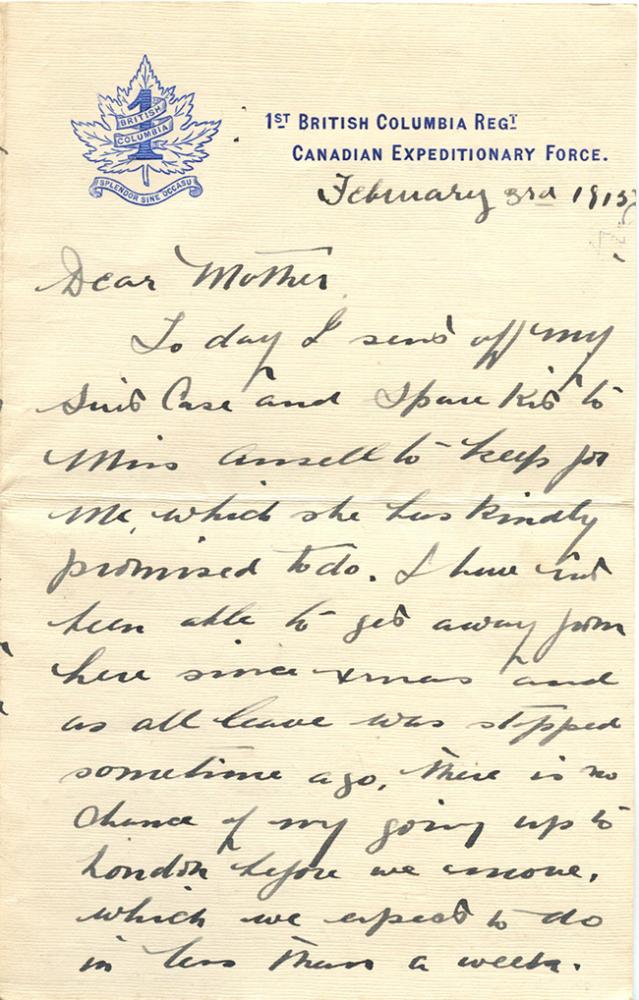 1
BRITISH
COLUMBIA
SPLENDOR SINE OCCASU
1ST BRITISH COLUMBIA REGT
CANADIAN EXPEDITIONARY FORCE.
February 3rd 1915
Dear Mother
To day I send off my
Suit Case and Spare Kit to
Miss Ansell to keep for
me, which she has kindly
promised to do. I have not
been able to get away from
here since xmas and
as all leave was stopped
sometime ago, there is no
chance of my going up to
London before we move,
which we expect to do
in less than a week.